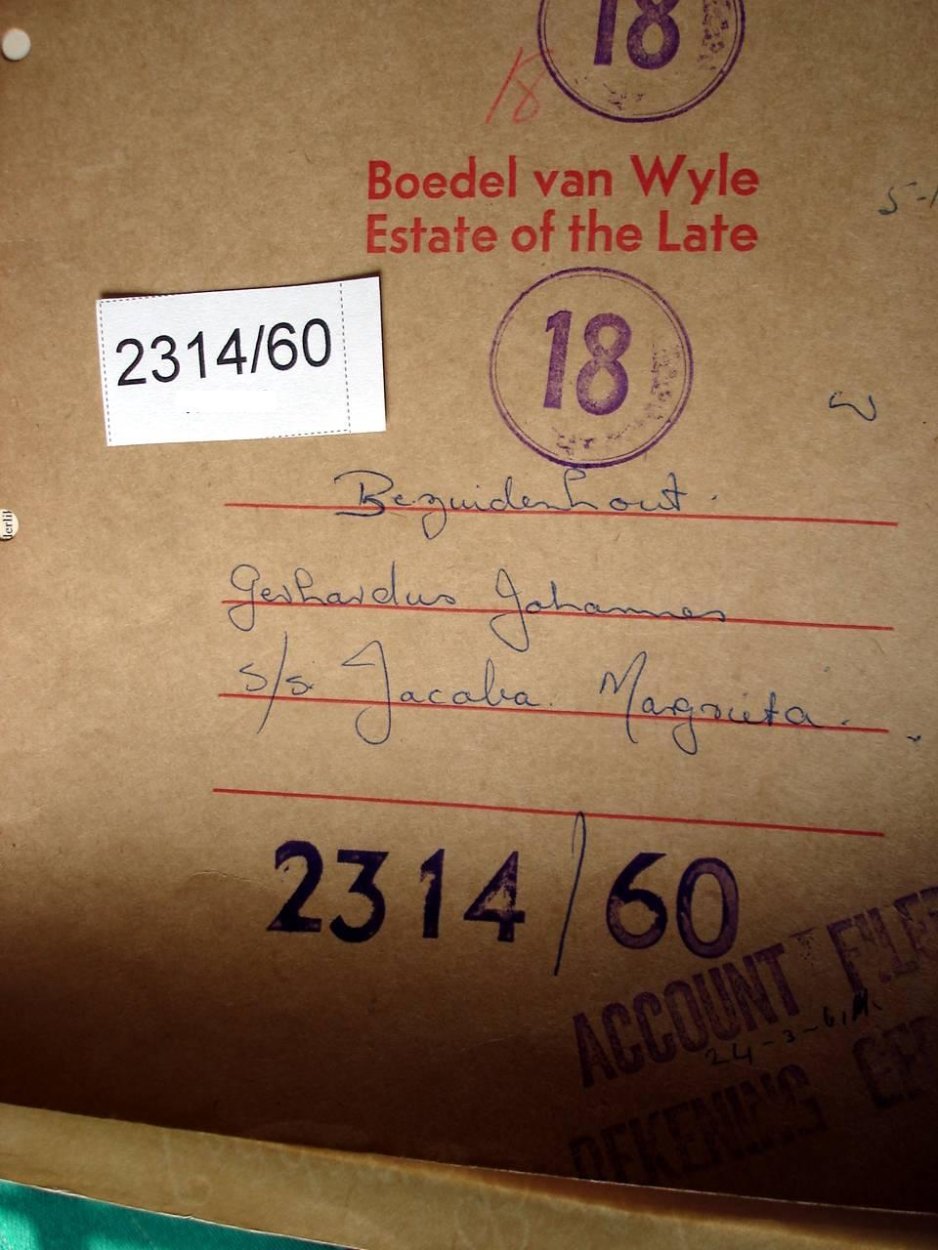 18
18
Boedel van Wyle
Estate of the Late
2314/60
18
Bezuidenhout.
Gerhardus Johannes
s/s. Jacoba Margrieta.
2314/60
ACCOUNT FILED
24-3-61
REKENING